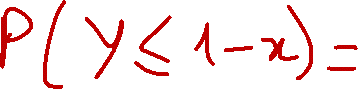 P(Y ≤ 1-x) =